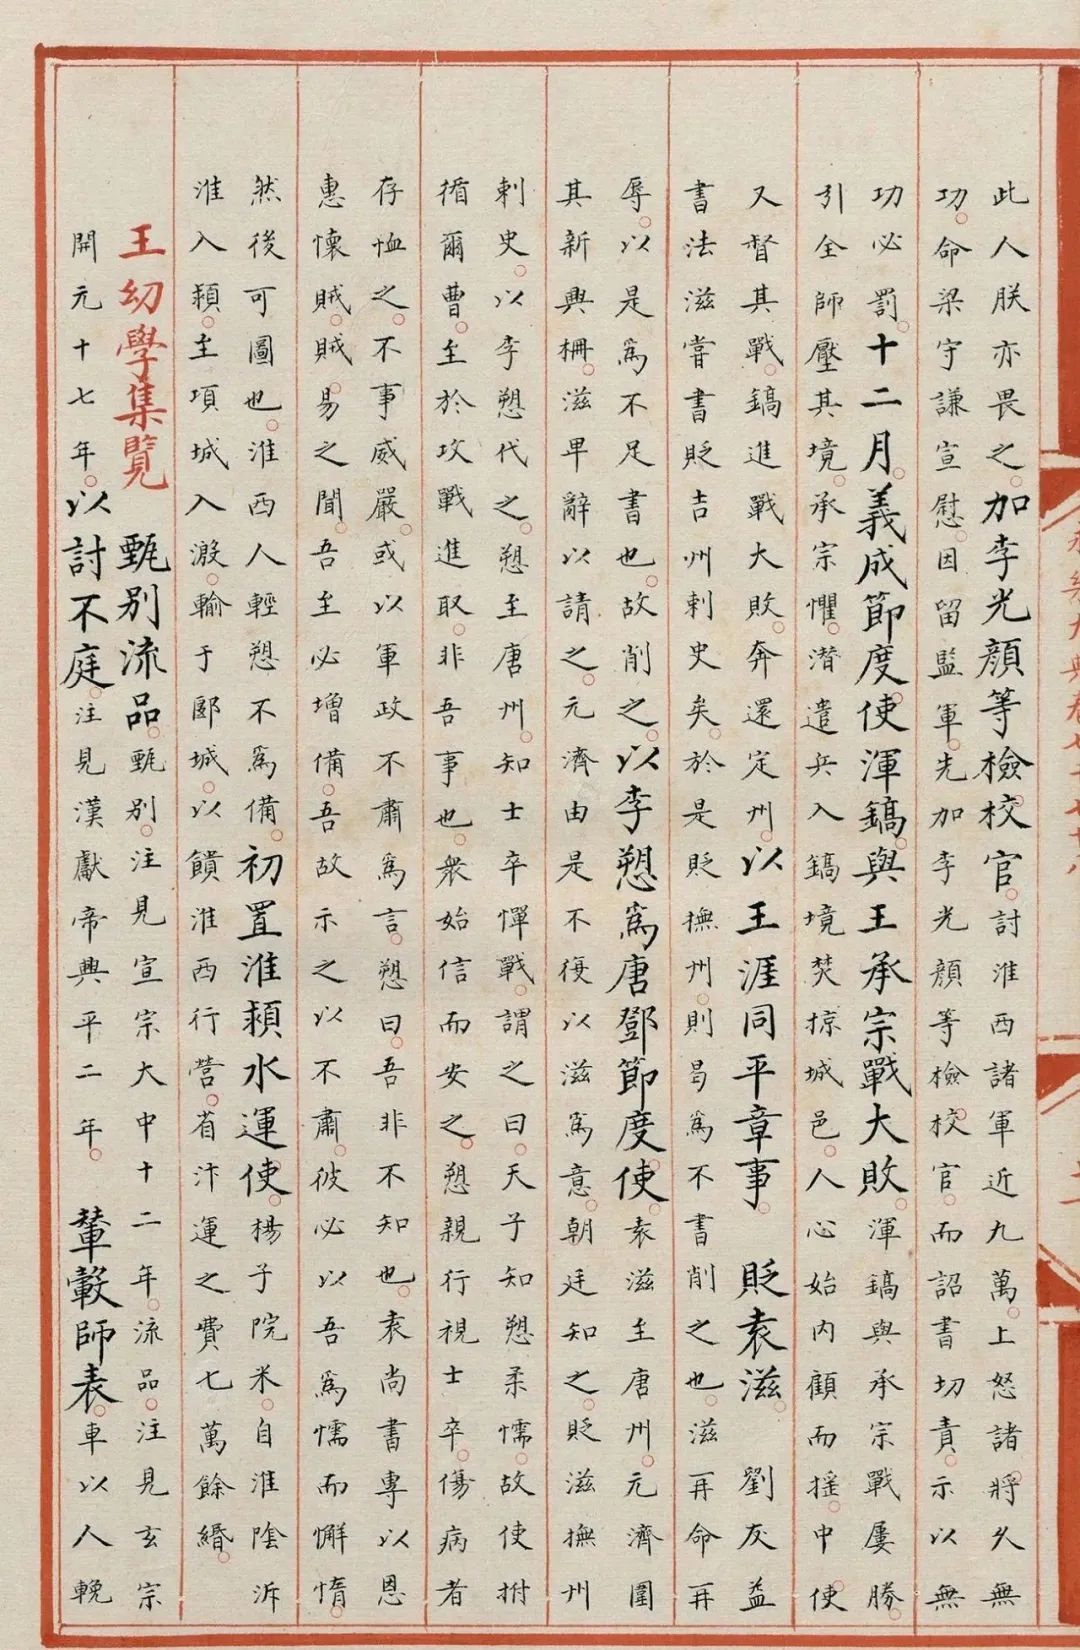 此人朕亦畏之。加李光顏等檢校官。討淮西諸軍近九萬。上怒諸將久無
功。命梁守謙宣慰。因留監軍。先加李光顏等檢校官。而詔書切責。示以無
功必罰。十二月。義成節度使渾鎬與王承宗戰大敗。渾鎬與承宗戰屢勝。
引全師壓其境。承宗懼。潛遣兵入鎬境焚掠城邑。人心始內顧而搖。中使
又督其戰。鎬進戰大敗。奔還定州。以王涯同平章事。 貶袁滋。 劉友益
書法滋嘗書貶吉州刺史矣。於是貶撫州。則曷爲不書削之也。滋再命再
辱。以是爲不足書也。故削之。以李愬爲唐鄧節度使。袁滋至唐州。元濟圍
其新興柵。滋卑辭以請之。元濟由是不復以滋爲意。朝廷知之。貶滋撫州
刺史。以李愬代之。愬至唐州。知士卒憚戰。謂之曰。天子知愬柔懦。故使拊
循爾曹。至於攻戰進取。非吾事也。衆始信而安之。愬親行視士卒。傷病者
存恤之。不事威嚴。或以軍政不肅爲言。愬曰。吾非不知也。袁尚書專以恩
惠懷賊。賊易之聞。吾至必增備。吾故示之以不肅。彼必以吾爲懦而懈惰。
然後可圖也。淮西人輕愬不爲備。初置淮潁水運使。楊子院米。自淮陰泝
淮入潁。至項城入溵。輸于郾城。以饋淮西行營。省汴運之費七萬餘緡。
王幼學集覽 甄別流品。甄別。注見宣宗大中十二年。流品。注見玄宗
開元十七年。以討不庭。注見漢獻帝興平二年。 輦轂師表。車以人輓